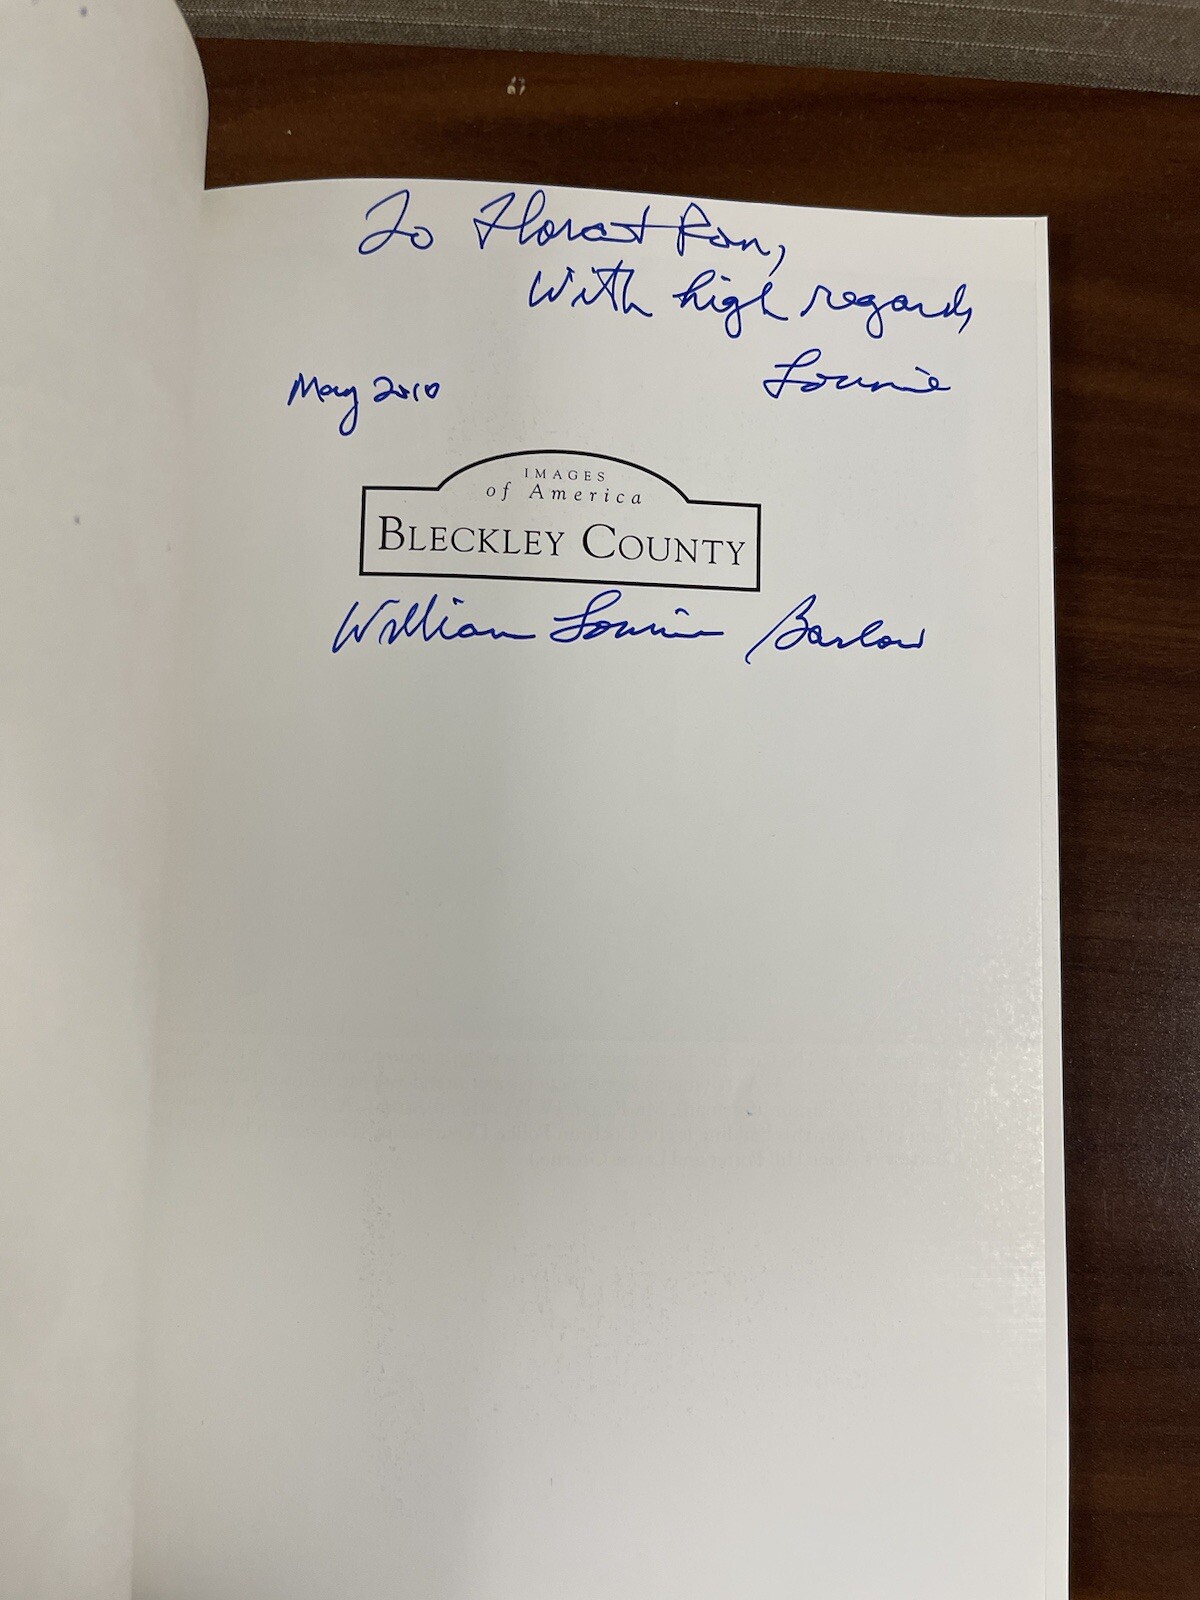 To Flora + Ron,
With high regards,
May 2010 Lonnie
IMAGES
of America
BLECKLEY COUNTY
William Lonnie Barlow